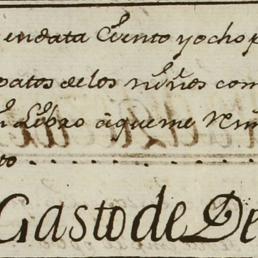 en data Ciento y ocho p
patos de los niños com
Libro a que me Rem
to
Gasto de De